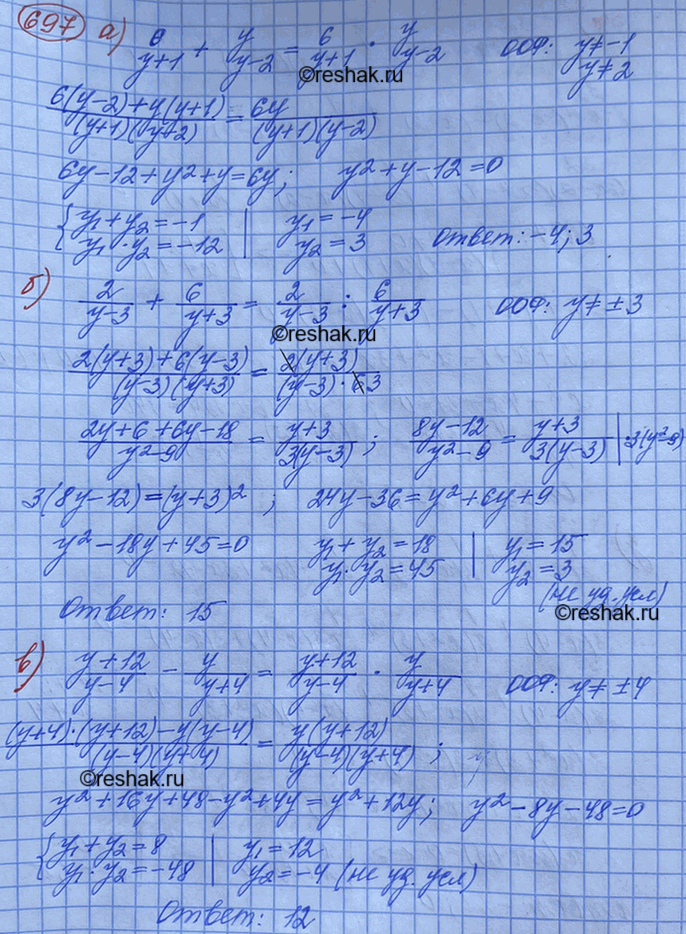 697 а) 6/(y+1) + y/(y-2) = 6/(y+1) · y/(y-2) ООФ: y≠-1
y≠2
©reshak.ru
(6(y-2)+y(y+1))/((y+1)(y+2)) = 6y/((y+1)(y-2))
6y-12+y²+y=6y; y²+y-12=0
{ y₁+y₂=-1 | y₁=-4
y₁·y₂=-12 | y₂=3 Ответ: -4; 3
б) 2/(y-3) + 6/(y+3) = 2/(y-3) : 6/(y+3) ООФ: y≠±3
©reshak.ru
(2(y+3)+6(y-3))/((y-3)(y+3)) = 2(y+3)/((y-3)·6 3)
(2y+6+6y-18)/(y²-9) = (y+3)/(3(y-3)); (8y-12)/(y²-9) = (y+3)/(3(y-3)) |·3(y²-9)
3(8y-12)=(y+3)²; 24y-36=y²+6y+9
y²-18y+45=0 y₁+y₂=18 | y₁=15
y₁·y₂=45 | y₂=3
(не уд. усл)
©reshak.ru
Ответ: 15
в) (y+12)/(y-4) - y/(y+4) = (y+12)/(y-4) · y/(y+4) ООФ: y≠±4
((y+4)·(y+12)-y(y-4))/((y-4)(y+4)) = y(y+12)/((y-4)(y+4));
©reshak.ru
y²+16y+48-y²+4y=y²+12y; y²-8y-48=0
{ y₁+y₂=8 | y₁=12
y₁·y₂=-48 | y₂=-4 (не уд. усл)
Ответ: 12